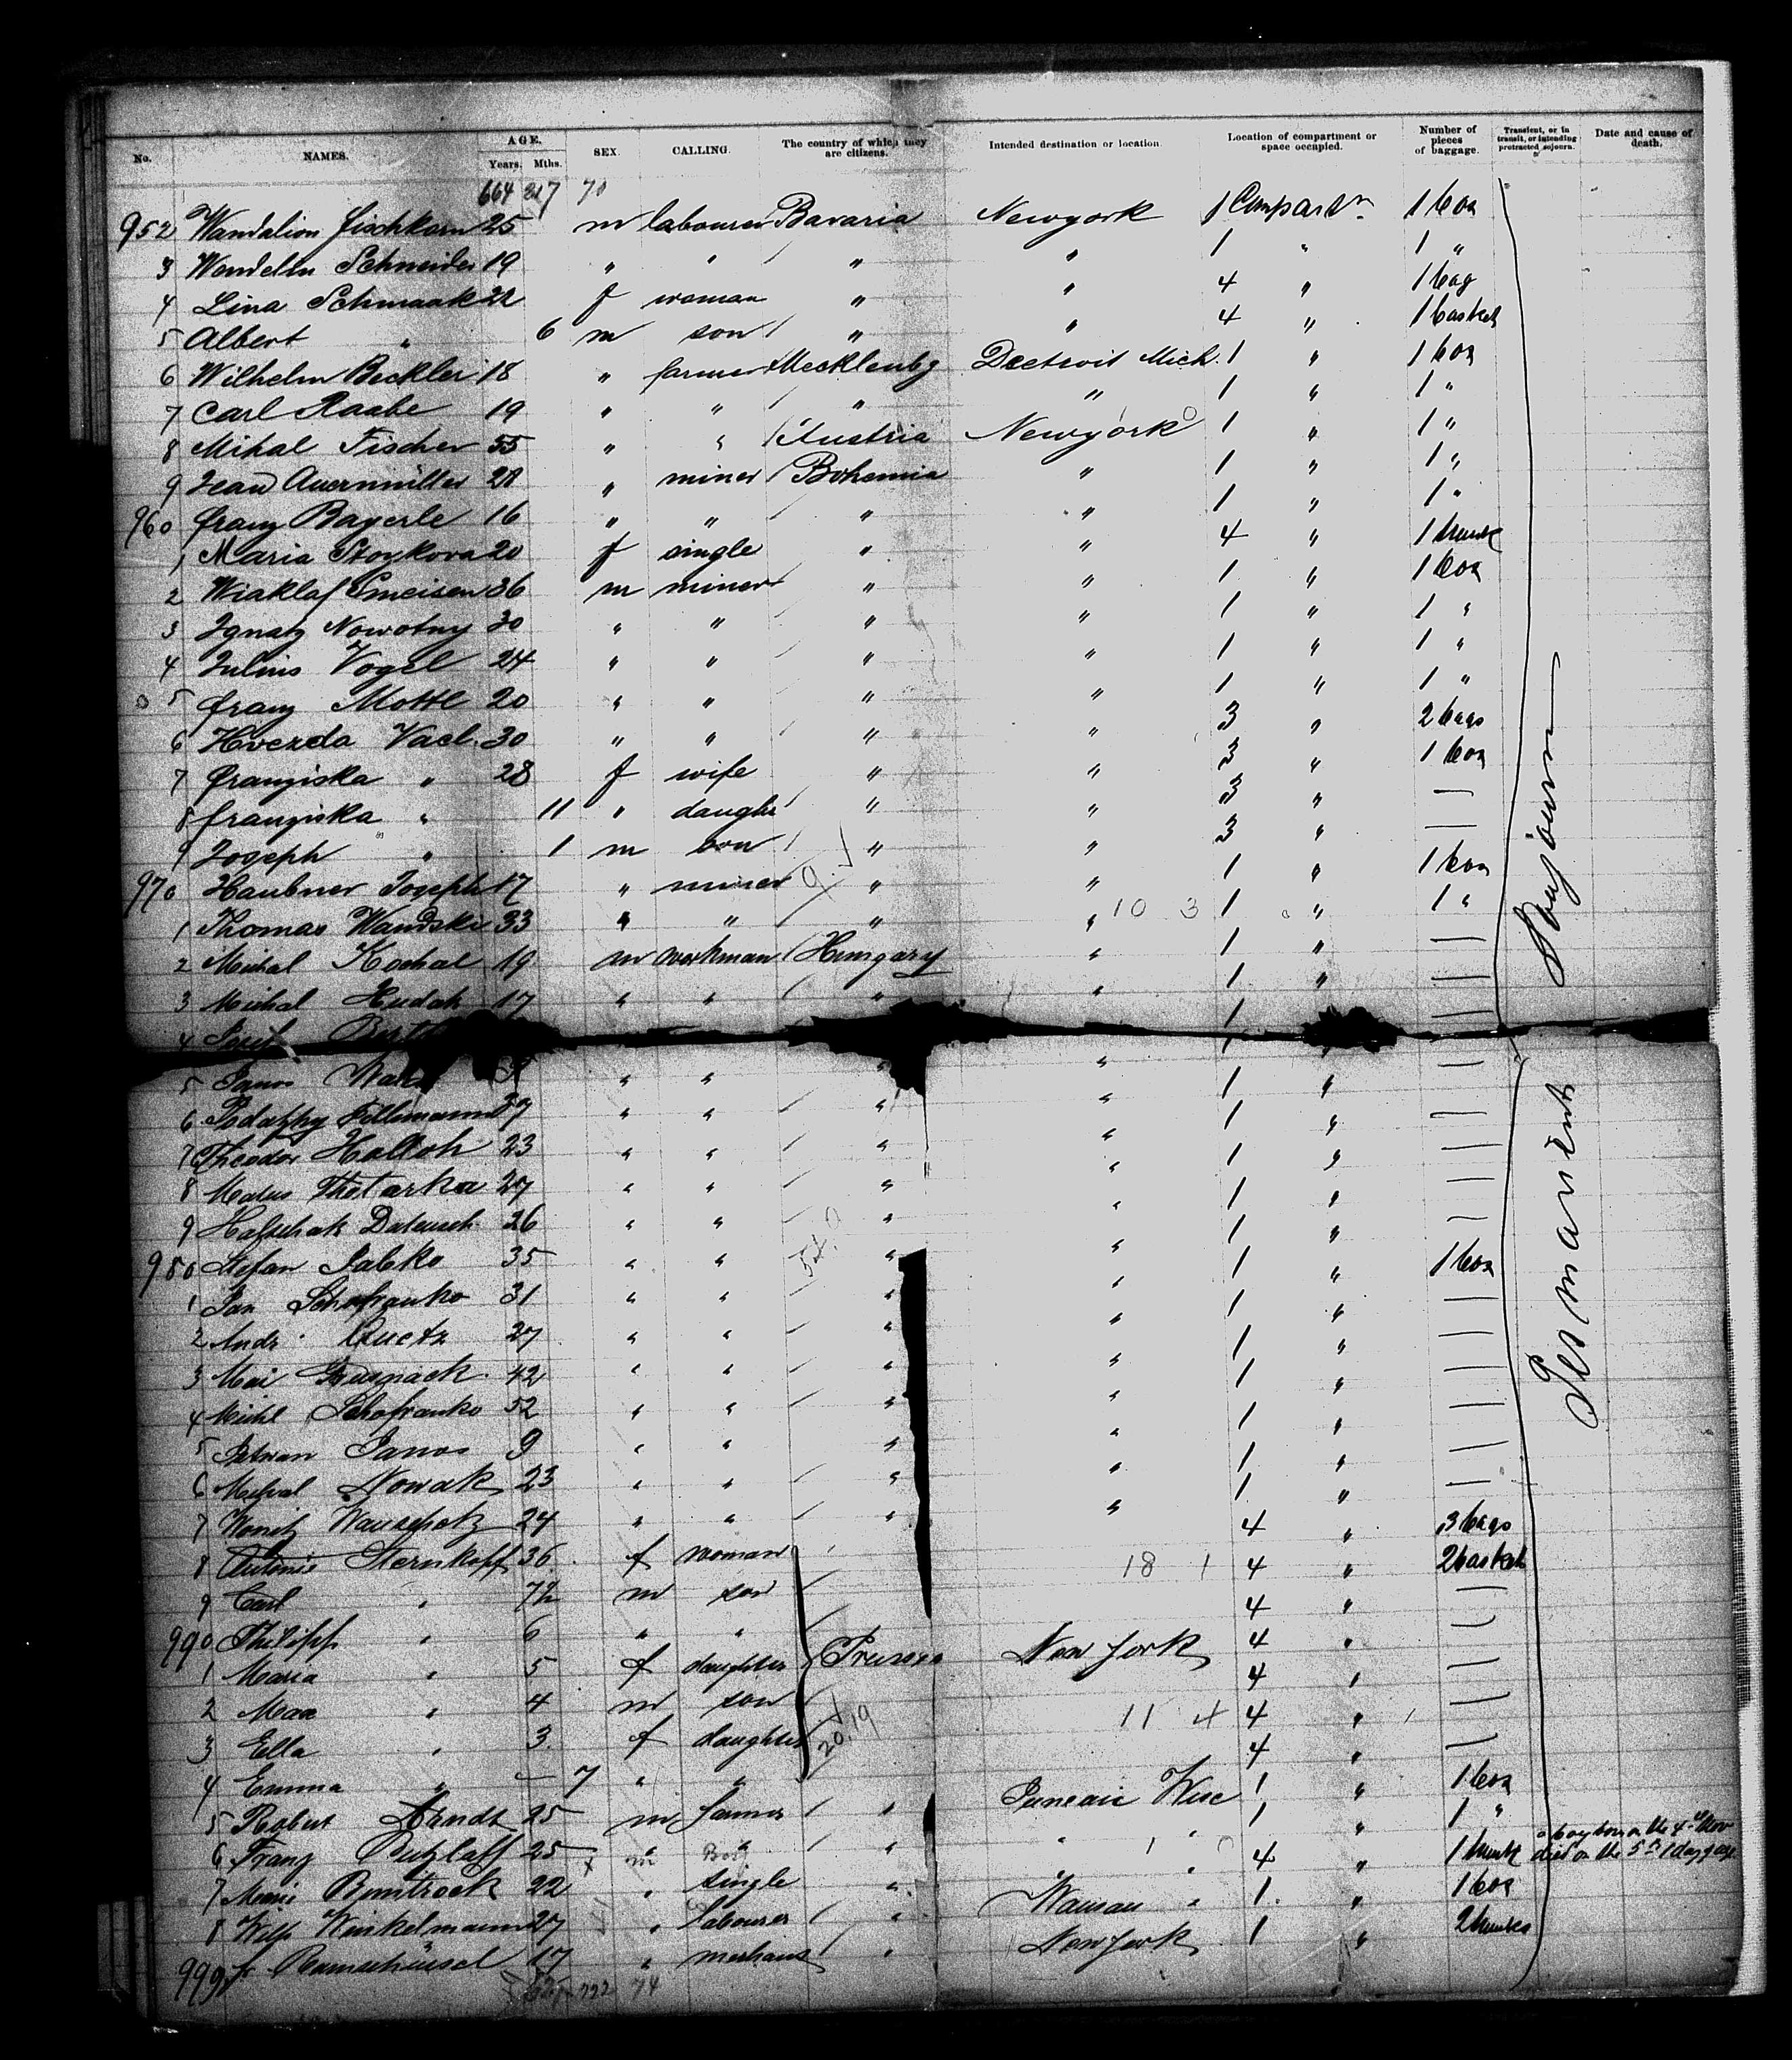 No. NAMES. AGE. Years. Mths. SEX. CALLING. The country of which they are citizens. Intended destination or location. Location of compartment or space occupied. Number of pieces of baggage. Transient, or in transit, or intending protracted sojourn. Date and cause of death.
664 217 70
952 Wandalion Fischkorn 25 m labourer Bavaria Newyork 1 Compartm 1 box
3 Wendelin Schneider 19 " " " " 1 " 1 "
4 Lina Schmaak 22 f woman " " 4 " 1 bag
5 Albert " 6 m son " " 4 " 1 basket
6 Wilhelm Beckler 18 " farmer Mecklenbg Deetroit Mich. 1 " 1 box
7 Carl Raabe 19 " " " " 1 " 1 "
8 Mihal Fischer 55 " " Austria Newyork 1 " 1 "
9 Jean Auernmüller 28 " miner Bohemia " 1 " 1 "
960 Franz Bayerle 16 " " " " 1 " 1 "
1 Maria Stoykova 20 f single " " 4 " 1 trunk
2 Wiaklaf Smeisen 36 m miner " " 1 " 1 box
3 Ignatz Nowotny 30 " " " " 1 " 1 "
4 Julius Vogel 24 " " " " 1 " 1 "
5 Franz Mottl 20 " " " " 1 " 1 "
6 Hvezda Vacl. 30 " " " " 3 " 2 bags
7 Franziska " 28 f wife " " 3 " 1 box
8 Franziska " 11 " daughr " " 3 " —
9 Joseph " 1 m son " " 3 " —
970 Haubner Joseph 17 " miner " " 1 " 1 box
1 Thomas Wandski 33 " " " " 10 3 1 " 1 "
2 Michal Kochal 19 m workman Hungary " 1 " —
3 Michal Hudak 17 " " " " 1 " —
4 1 —
5 Janos " " " " 1 " —
6 Fillmann " " " " 1 " —
7 Theodor Halloh 23 " " " " 1 " —
8 Thetarka 27 " " " " 1 " —
9 Hafschak 26 " " " " 1 " —
980 Stefan Jabko 35 " " " " 1 " 1 box
1 Jan Schofranko 31 " " " " 1 " —
2 Andr. 27 " " " " 1 " —
3 42 " " " " 1 " —
4 Michl Schofranko 52 " " " " 1 " —
5 Janos 9 " " " " 1 " —
6 Michal Nowak 23 " " " " 1 " —
7 24 " " " " 4 " 3 bags
8 Antonie Sternkopf 36 f woman 18 1 4 " 2 baskets
9 Carl " 7½ m son 4 " —
990 Philipp " 6 " " Prussia New York 4 " —
1 Maria " 5 f daughter 4 " —
2 Max " 4 m son 11 4 4 " —
3 Ella " 3 f daughter 20.19 4 " —
4 Emma " — 7 " " 1 " 1 box
5 Robert Arndt 25 m farmer " Juneau Wisc 1 " 1 "
6 Franz Putzlaff 25 " " " " 4 " 1 trunk a boy born on the 4th Nov died on the 5th 1 day of age
7 Marie 22 " single " " 1 " 1 box
8 Wilh Winkelmann 27 " labourer " Wausau " 1 " 2 trunks
999 17 " merchant " New York
222 74
Sojourn
Permanent